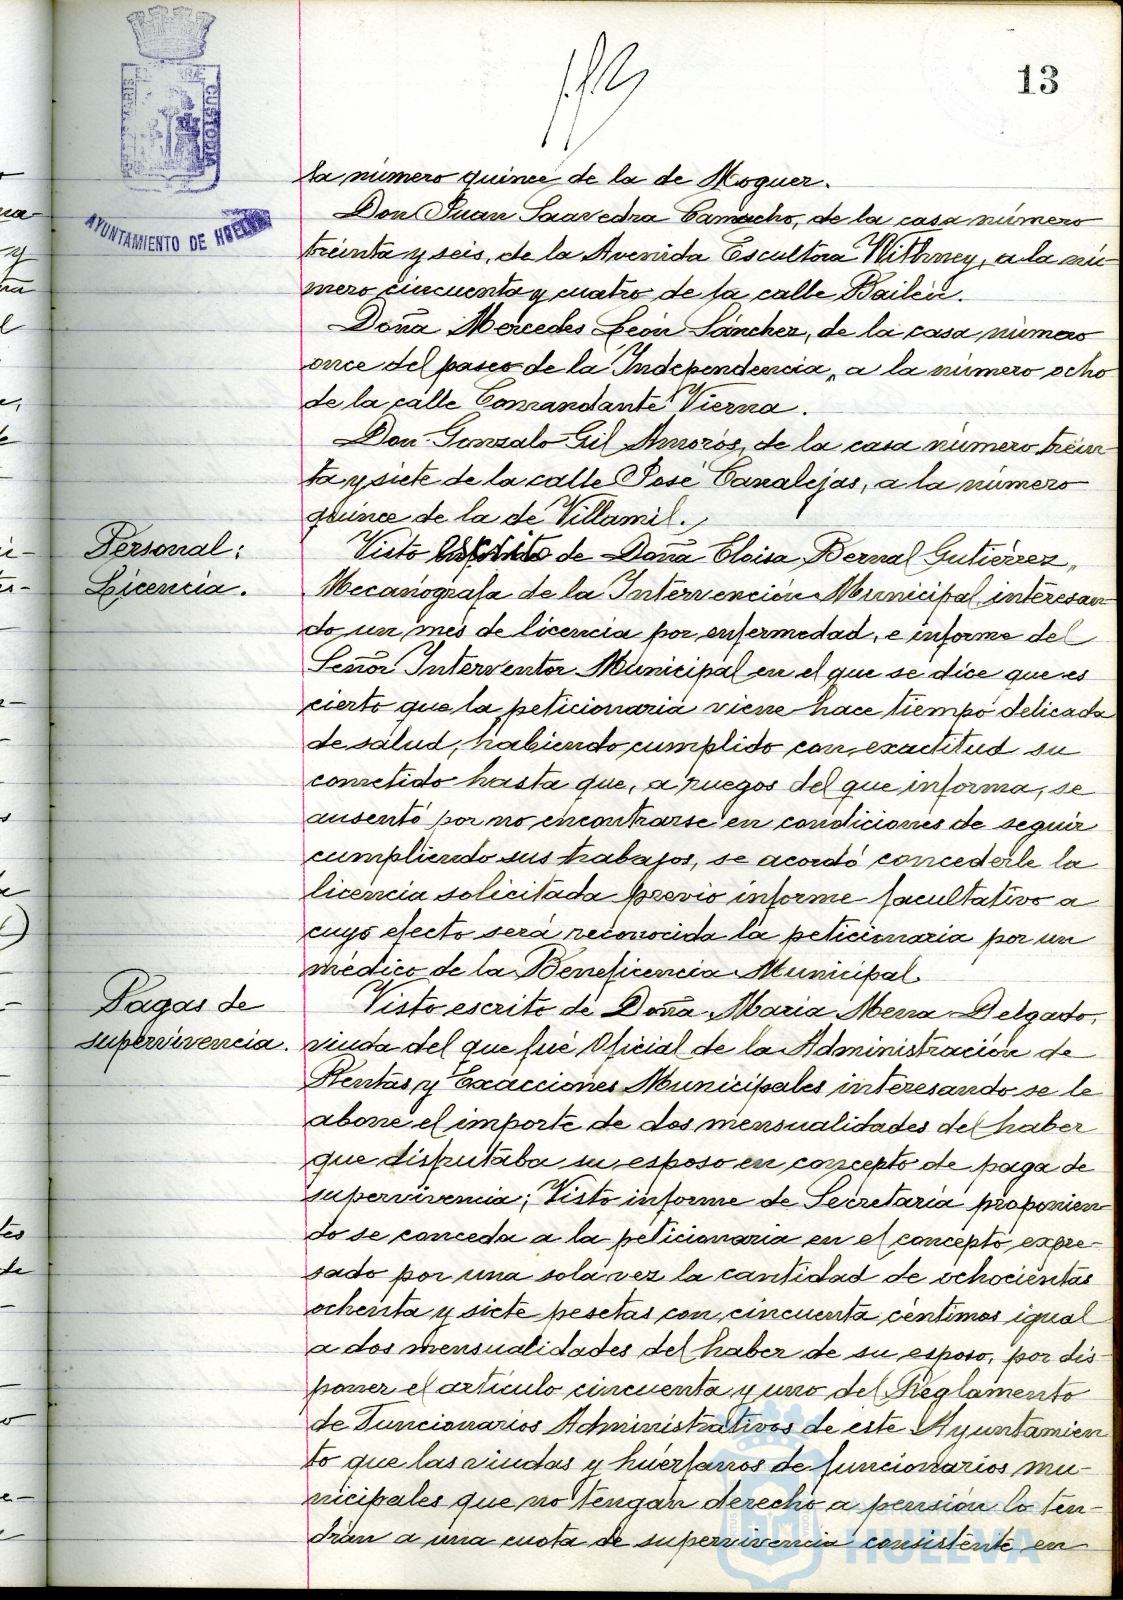 13
AYUNTAMIENTO DE HUELVA
ta número quince de la de Moguer.
Don Juan Saavedra Camacho, de la casa número
treinta y seis, de la Avenida Escultora Withney, a la nú-
mero cincuenta y cuatro de la calle Bailén.
Doña Mercedes León Sánchez, de la casa número
once del paseo de la Independencia, a la número ocho
de la calle Comandante Vierna.
Don Gonzalo Gil Amorós, de la casa número trein-
ta y siete de la calle José Canalejas, a la número
quince de la de Villamil.
Personal:
Licencia.
Visto escrito de Doña Eloisa Bernal Gutiérrez,
Mecanógrafa de la Intervención Municipal, interesan-
do un mes de licencia por enfermedad, e informe del
Señor Interventor Municipal en el que se dice que es
cierto que la peticionaria viene hace tiempo delicada
de salud, habiendo cumplido con exactitud su
cometido hasta que, a ruegos del que informa, se
ausentó por no encontrarse en condiciones de seguir
cumpliendo sus trabajos, se acordó concederle la
licencia solicitada previo informe facultativo a
cuyo efecto será reconocida la peticionaria por un
médico de la Beneficencia Municipal.
Pagas de
supervivencia.
Visto escrito de Doña Maria Mena Delgado,
viuda del que fué Oficial de la Administración de
Rentas y Exacciones Municipales interesando se le
abone el importe de dos mensualidades del haber
que disfrutaba su esposo en concepto de paga de
supervivencia; Visto informe de Secretaría proponien-
do se conceda a la peticionaria en el concepto expre-
sado por una sola vez la cantidad de ochocientas
ochenta y siete pesetas con cincuenta céntimos igual
a dos mensualidades del haber de su esposo, por dis-
poner el artículo cincuenta y uno del Reglamento
de Funcionarios Administrativos de este Ayuntamien-
to que las viudas y huérfanos de funcionarios mu-
nicipales que no tengan derecho a pensión lo ten-
drán a una cuota de supervivencia consistente en
HUELVA